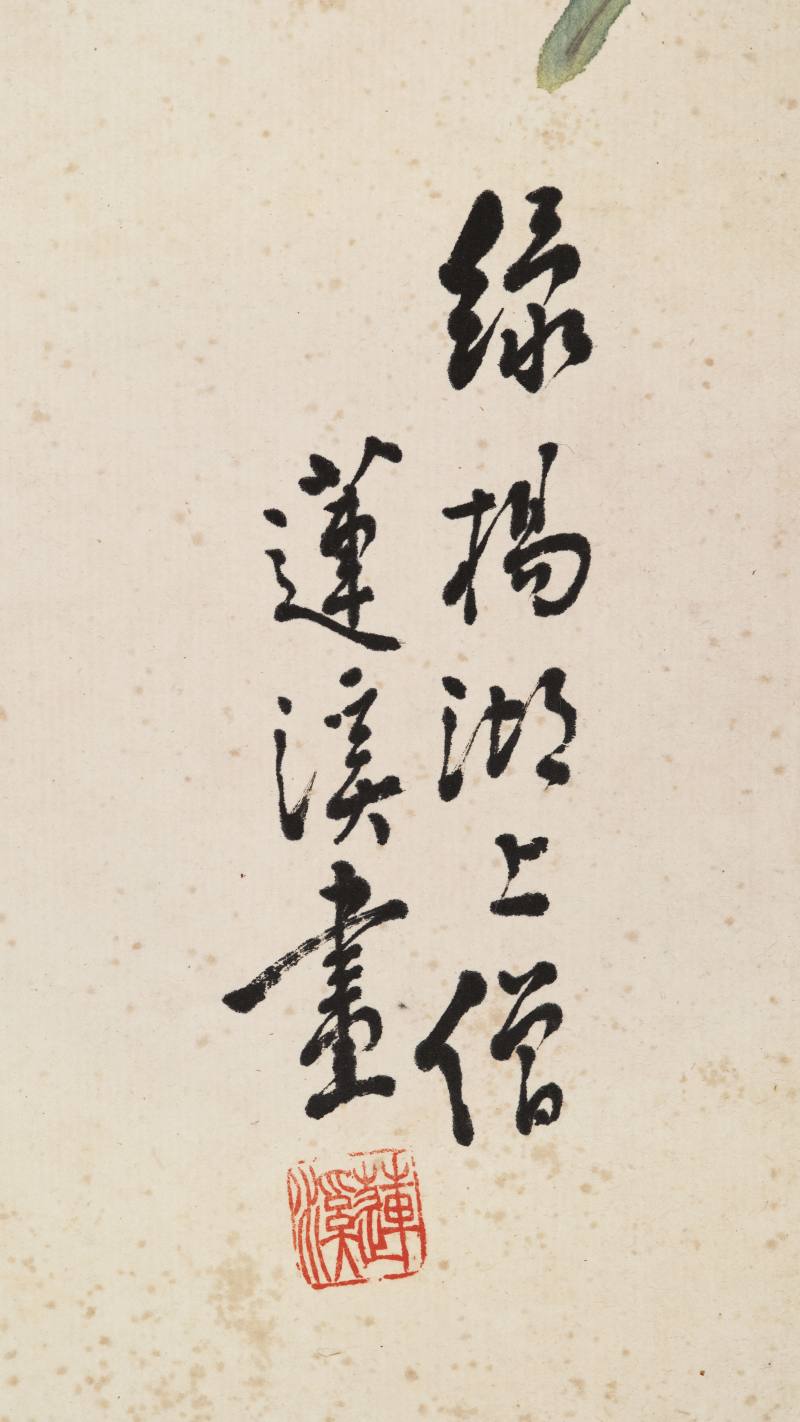 緑楊湖上僧
蓮溪畫
蓮溪